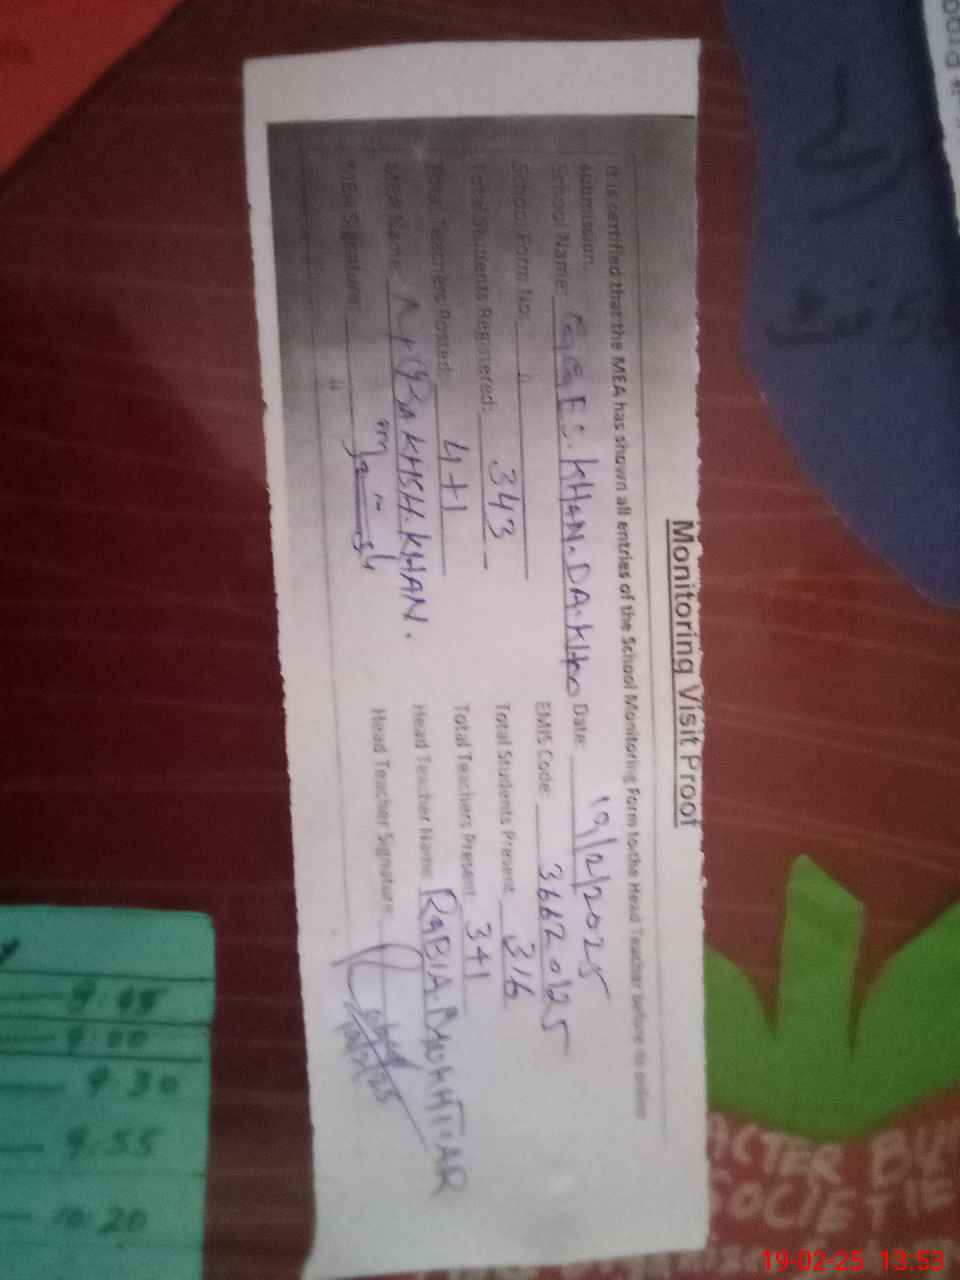 Monitoring Visit Proof
It is certified that the MEA has shown all entries of the School Monitoring Form to the Head Teacher before its online
submission.
School Name: GGES. KHAN. DA. KHOO Date: 19/2/2025
School Form No: EMIS Code: 36620125
Total Students Registered: 343 Total Students Present: 316
Total Teachers Posted: 4+1 Total Teachers Present: 3+1
MEA Name: BAKHSH. KHAN. Head Teacher Name: RABIA. MUKHTIAR
MEA Signature: Head Teacher Signature:
9:00
9:30
9:55
10:20
ACTER BU
SOCIETIE
19-02-25 13:53